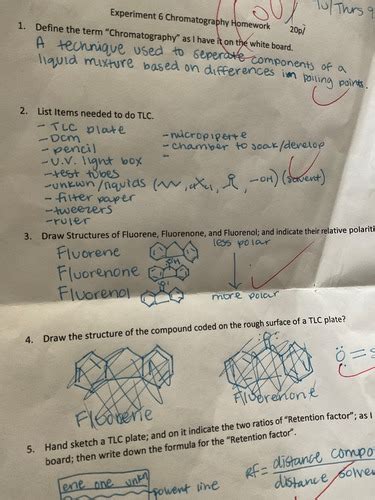 Experiment 6 Chromatography Homework 20p/
1. Define the term "Chromatography" as I have it on the white board.
A technique used to seperate components of a
liquid mixture based on differences in boiling points.
2. List Items needed to do TLC.
- TLC plate
- DCM
- pencil
- U.V. light box
- test tubes
- unkwn/liquids (
, -OH) (solvent)
- filter paper
- tweezers
- ruler
- micropiperte
- chamber to soak/develop
-
3. Draw Structures of Fluorene, Fluorenone, and Fluorenol; and indicate their relative polariti
Fluorene
less polar
Fluorenone
OH
Fluorenol
more polar
4. Draw the structure of the compound coded on the rough surface of a TLC plate?
Fluorene
Fluorenone
Ö = S
5. Hand sketch a TLC plate; and on it indicate the two ratios of "Retention factor"; as I
board; then write down the formula for the "Retention factor".
Rf = distance compo
distance solve
solvent line